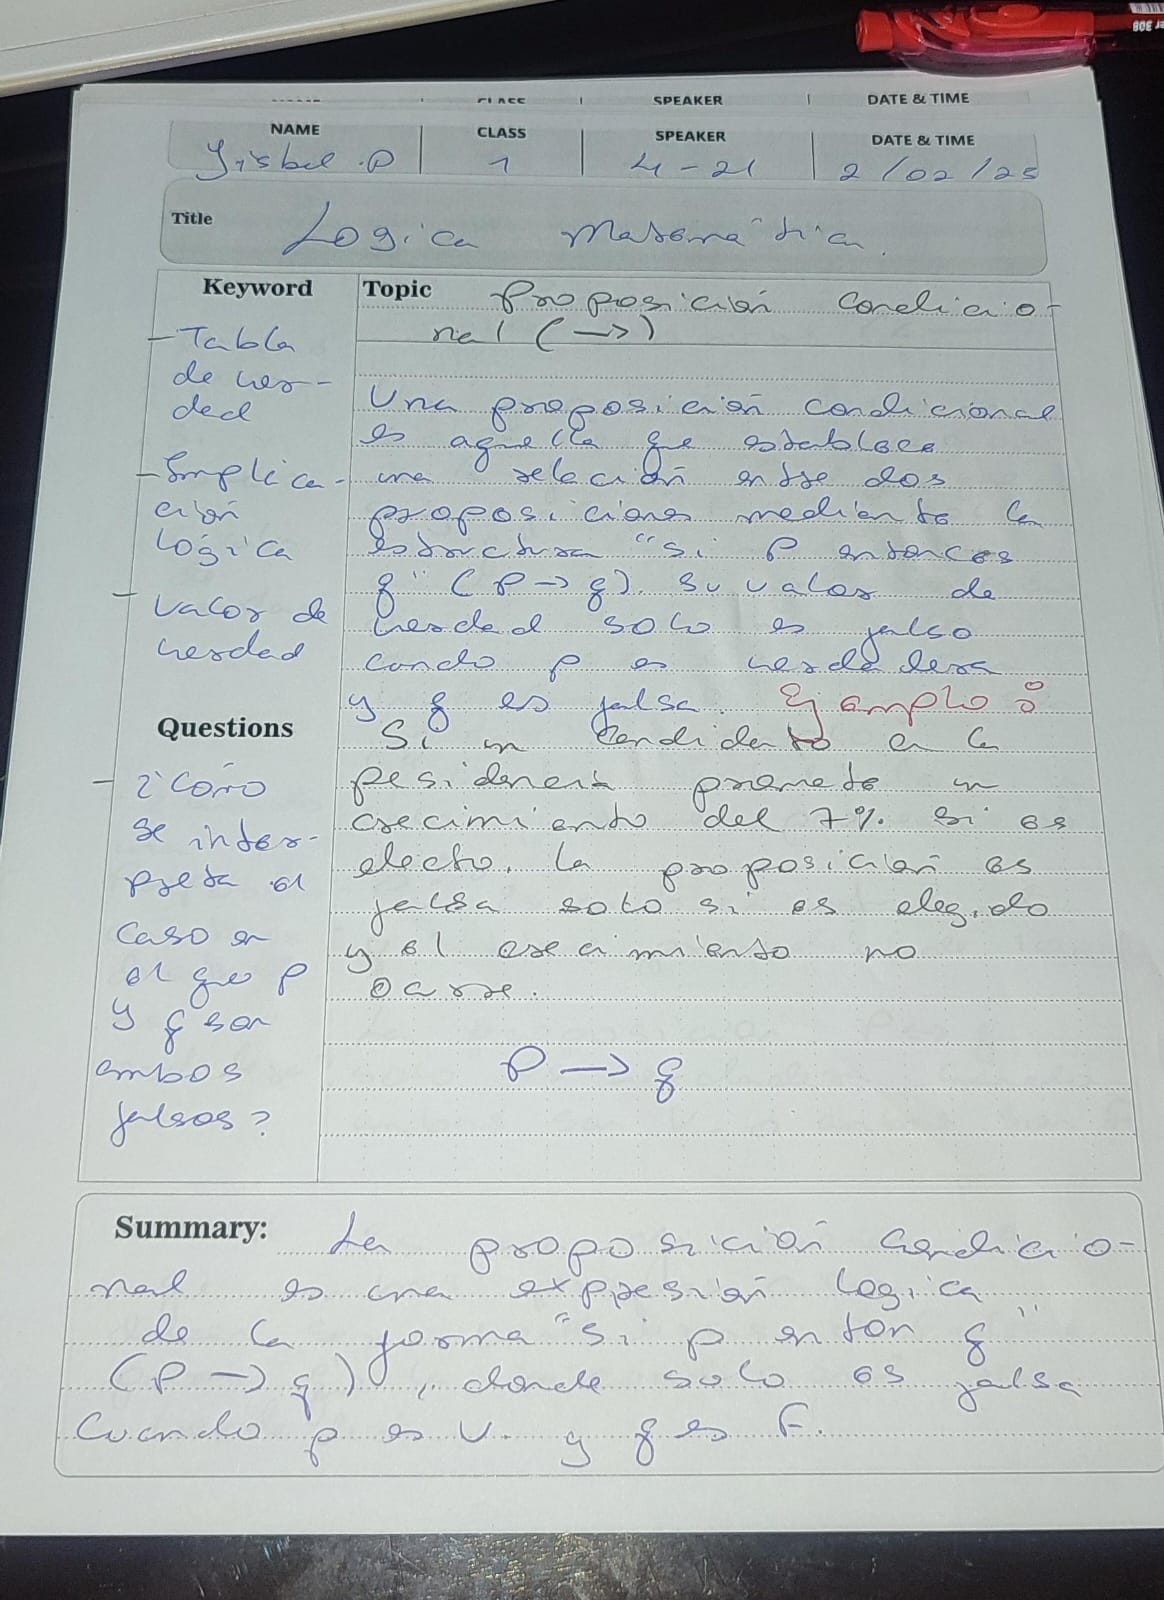 CLASS SPEAKER DATE & TIME
NAME CLASS SPEAKER DATE & TIME
Yisbel .P 1 4-21 2/02/25
Title Logica Matematica
Keyword
- Tabla
de ver-
dad
- Implica-
ción
lógica
- Valor de
verdad
Questions
- ¿Cómo
se inter-
preta el
caso en
el que p
y q son
ambos
falsos?
Topic Proposición condicio-
nal (→)
Una proposición condicional
es aquella que establece
una relación entre dos
proposiciones mediante la
estructura "si p entonces
q" (P→q). Su valor de
verdad solo es falso
cando p es verdadera
y q es falsa. Ejemplo:
Si un candidato a la
pesidencia promete un
crecimiento del 7% si es
electo. la proposición es
falsa solo si es elegido
y el crecimiento no
ocurre.
P → q
Summary: La proposición condicio-
nal es una expresión logica
de la forma "Si p enton q"
(P → q), donde solo es falsa
Cuando p es V. y q es F.